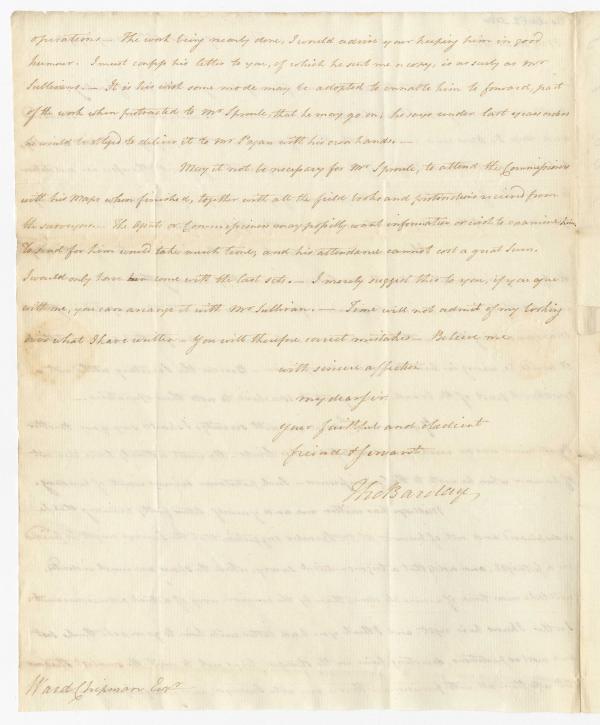 operations — The work being nearly done, I would advise your keeping him in good
humour. I must confess his letter to you, of which he sent me a copy, is as surly as Mr
Sullivans. — It is his wish some mode may be adopted to ennable him to forward, part
of the work when protracted to Mr Sproule, that he may go on, he says under last years orders
he would be obliged to deliver it to Mr Pagan with his own hands —
May it not be necessary for Mr Sproule, to attend the Commissioners
with his Maps when finished, together with all the field books and protractions received from
the surveyors — The Agents or Commissioners may possibly want information or wish to examine him,
To send for him would take much time, and his attendance cannot cost a great Sum.
I would only have him come with the last sets. — I merely suggest this to you, if you agree
with me, you can arrange it with Mr Sullivan. — Time will not admit of my looking
over what I have written — You will therefore correct mistakes — Believe me
with sincere affection
my dear sir
your faithful and obedient
friend & servant
Tho Barclay,
Ward Chipman Esqr